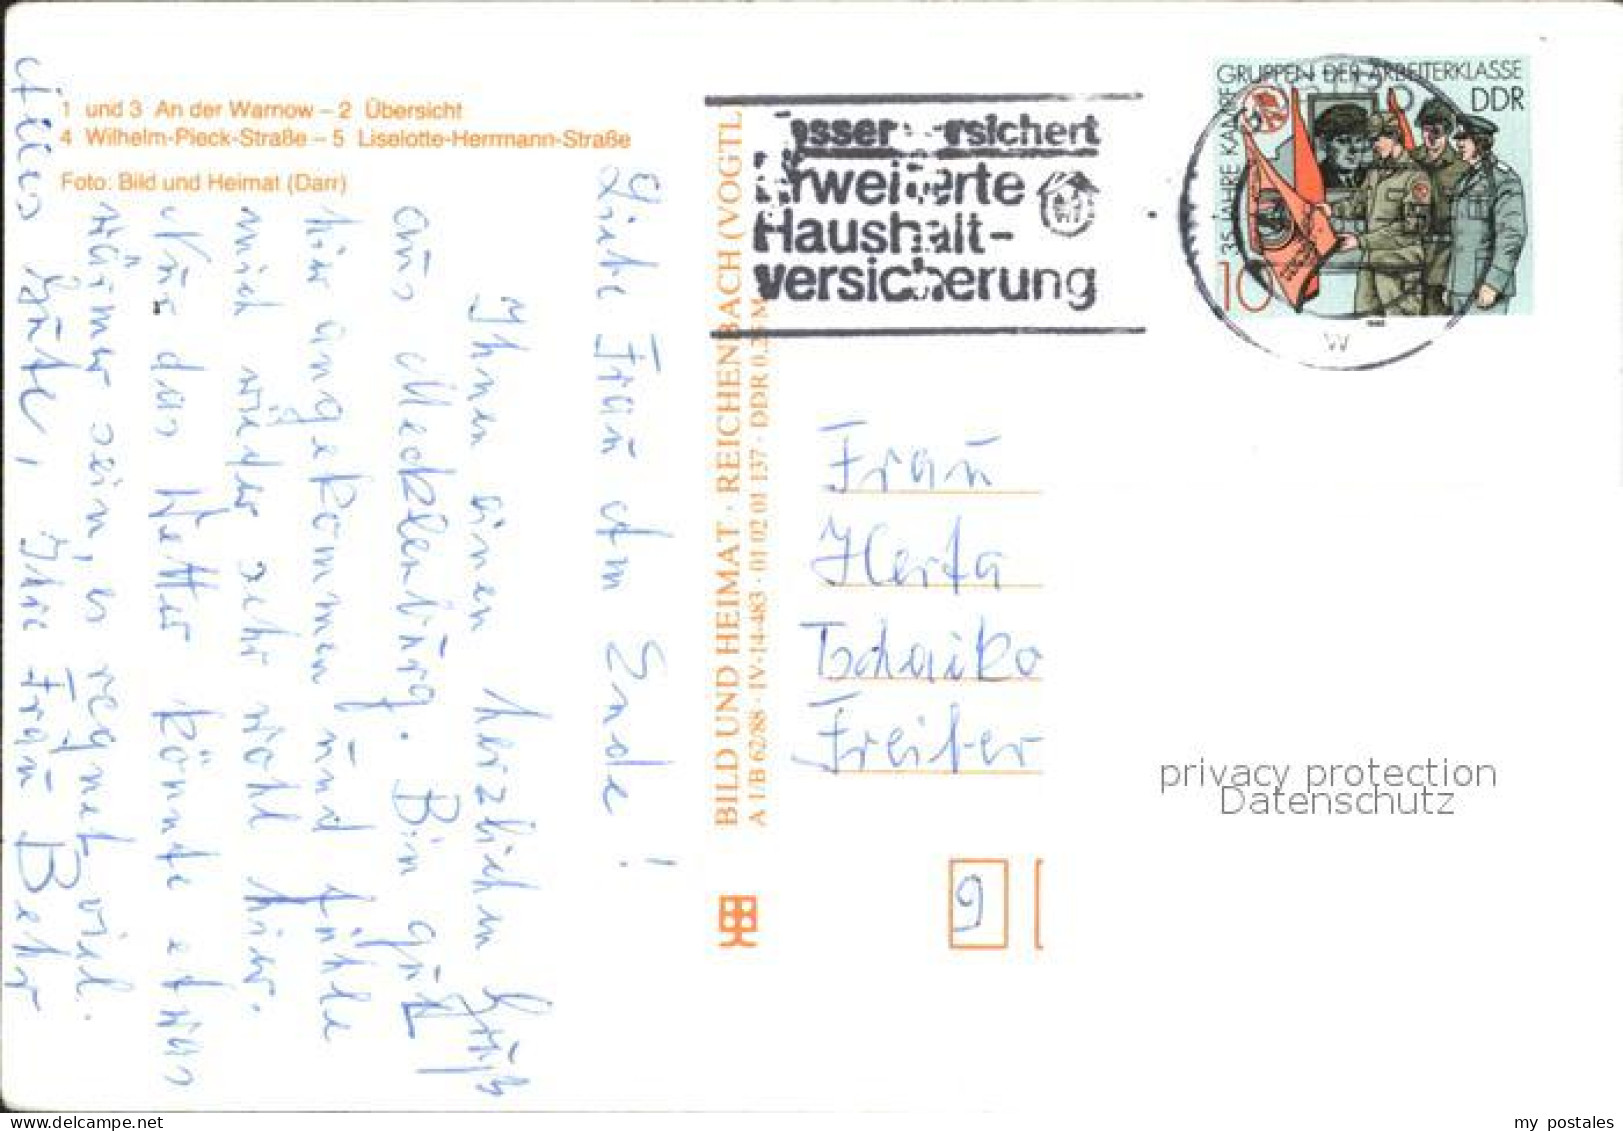 1 und 3 An der Warnow – 2 Übersicht
4 Wilhelm-Pieck-Straße – 5 Liselotte-Herrmann-Straße
Foto: Bild und Heimat (Darr)
Liebe Frau Am Ende!
Ihnen einen herzlichen Gruß
aus Mecklenburg. Bin gut
hier angekommen und fühle
mich wieder sehr wohl hier.
Nur das Wetter könnte etwas
wärmer sein, es regnet viel.
Alles Gute, Ihre Frau Behr
BILD UND HEIMAT · REICHENBACH (VOGTL
A 1/B 62/88 · IV-14-483 · 01 02 01 137 · DDR 0,25 M
esser rsichert
Erweiterte
Haushalt-
versicherung
35 JAHRE KAMPFGRUPPEN DER ARBEITERKLASSE
DDR
10
W
Frau
Herta
Tschaiko
Freiber
9
privacy protection
Datenschutz
my postales